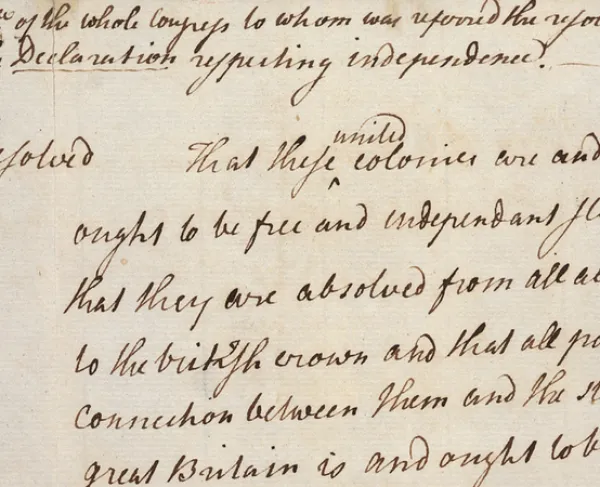 of the whole Congress to whom was referred the reso
Declaration respecting independence.
solved That these united colonies are and
ought to be free and independant St
that they are absolved from all al
to the british crown and that all po
connection between them and the st
great Britain is and ought to b